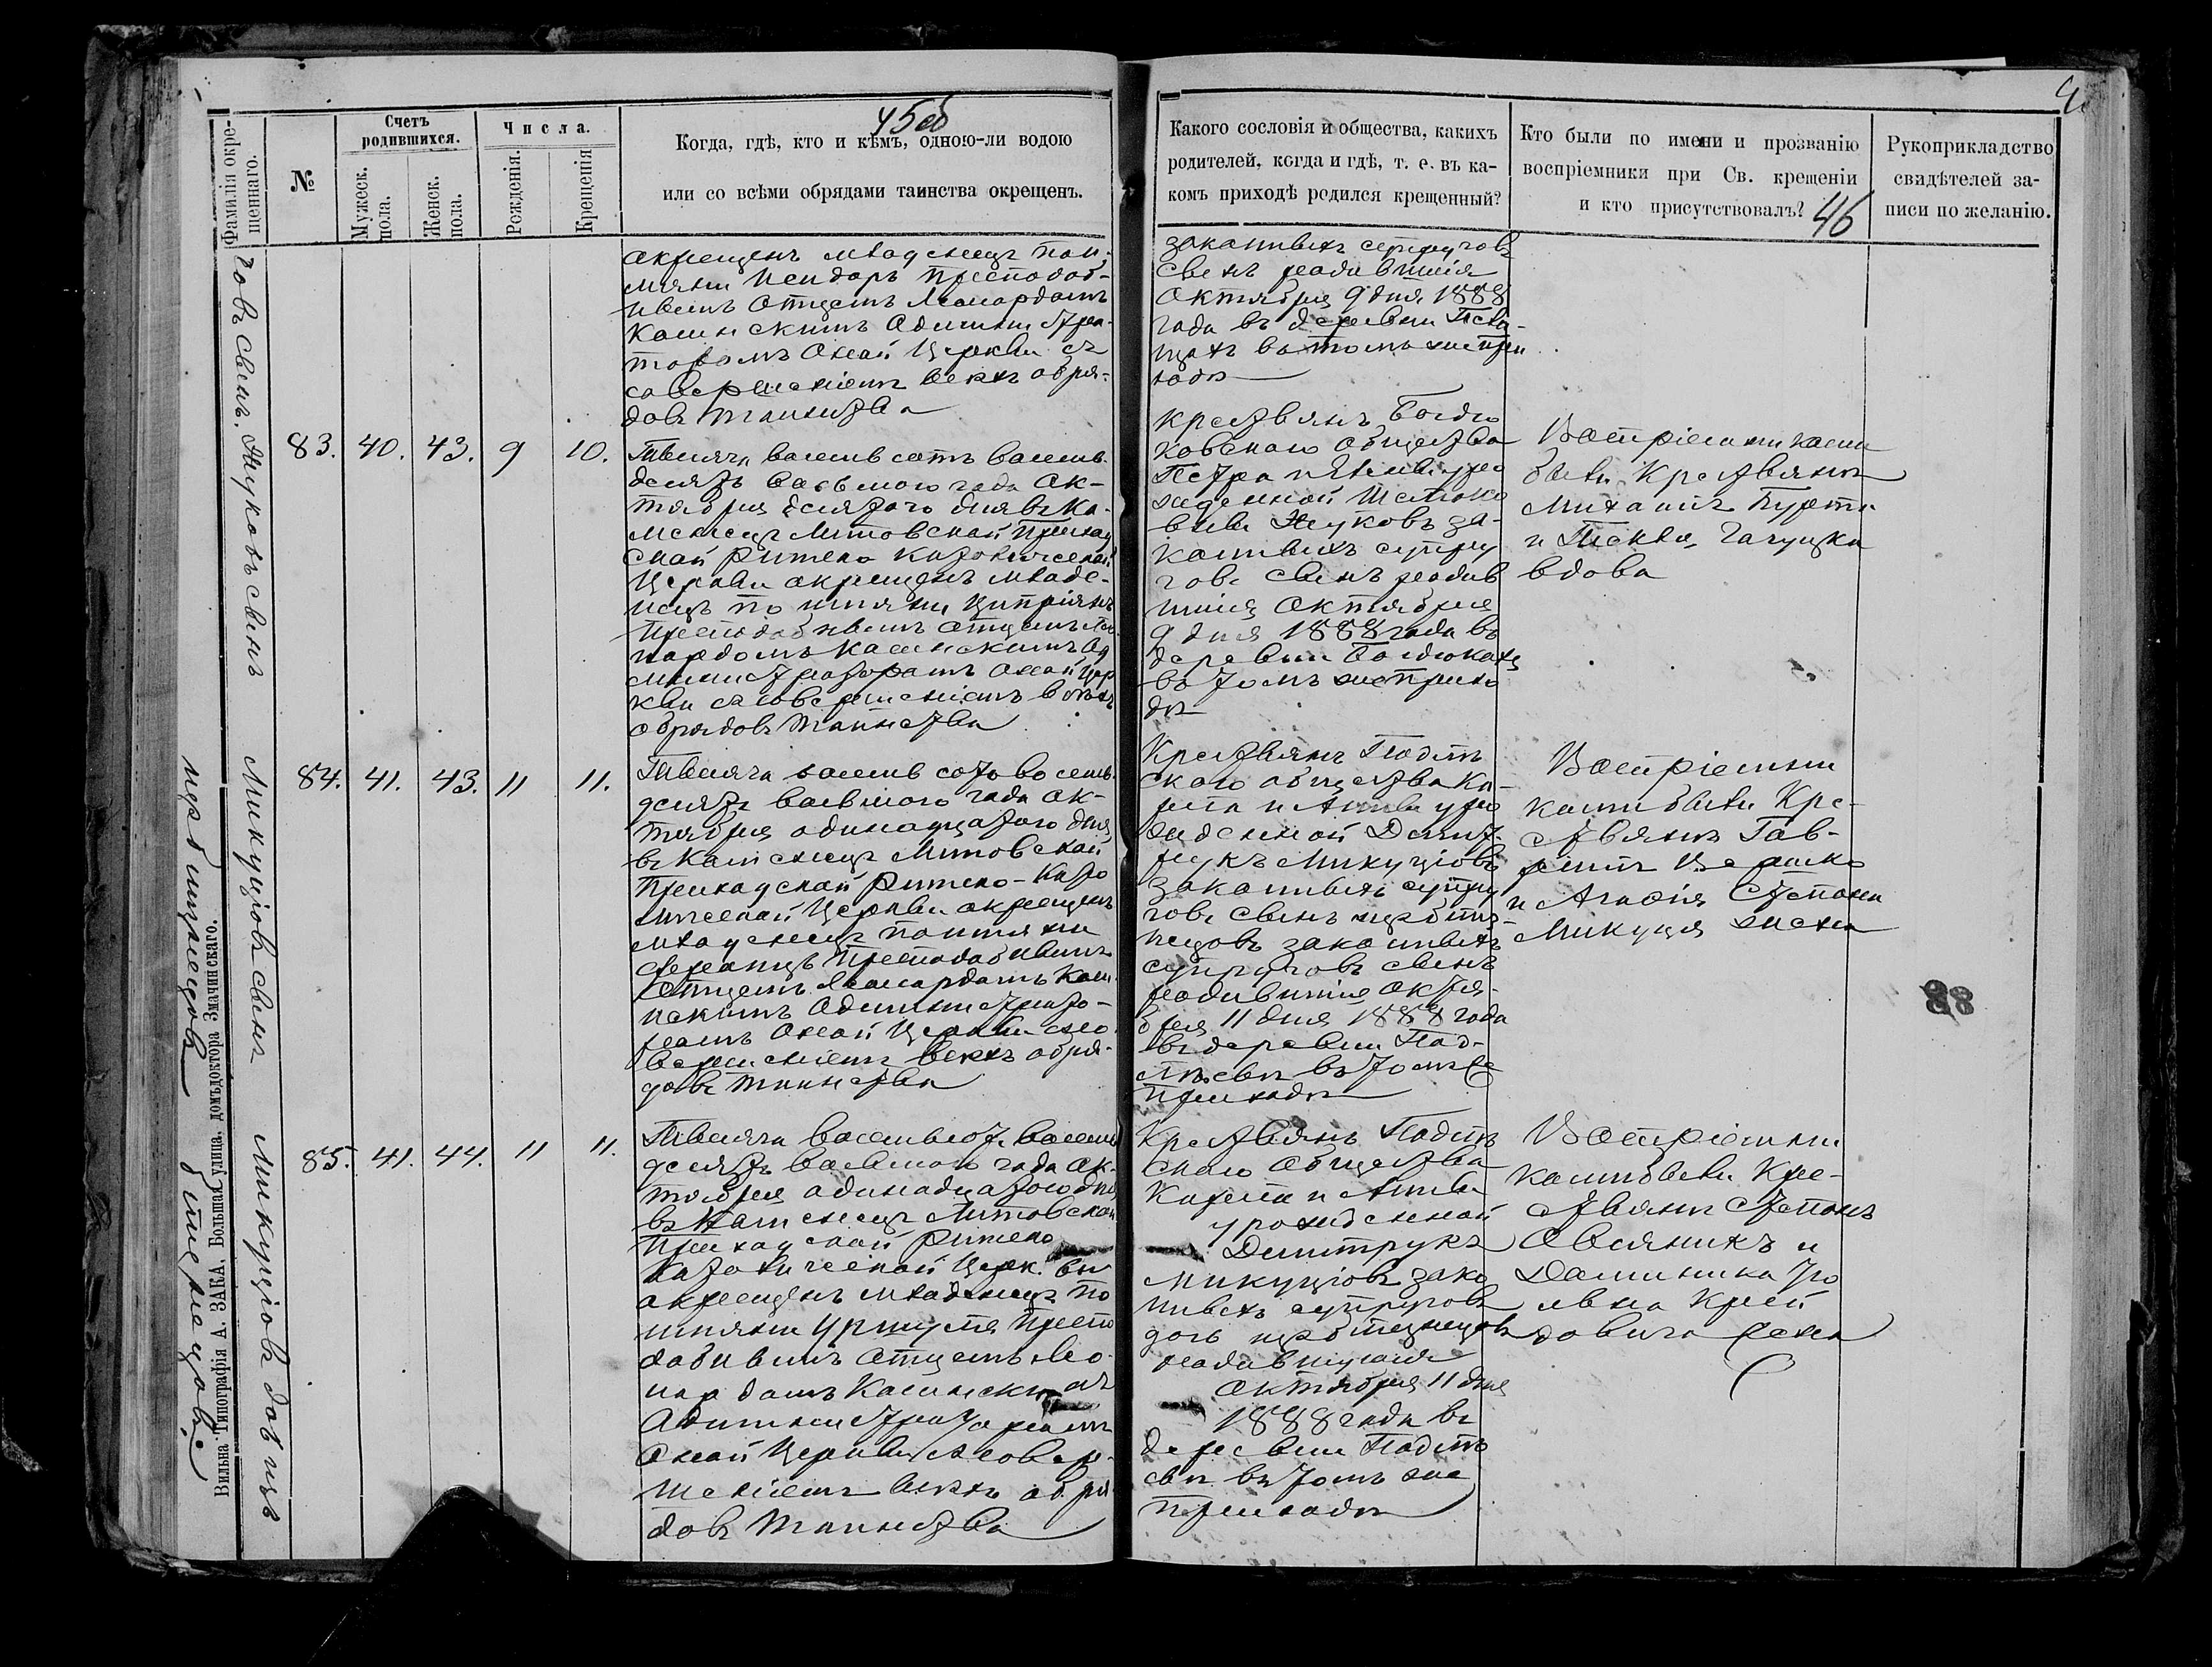 45 об
Фамилія окре-
щеннаго.
№
Счетъ
родившихся.
Мужеск.
пола.
Женск.
пола.
Числа.
Рожденія.
Крещенія
Когда, гдѣ, кто и кѣмъ, одною-ли водою
или со всѣми обрядами таинства окрещенъ.
окрещенъ младенецъ по и-
мяни Исидоръ Преподоб-
нымъ Отцемъ Леонардомъ
Каминскимъ Администра-
торомъ оной Церкви съ
совершеніемъ всѣхъ обря-
довъ таинства
Жуковъ сынъ
83. 40. 43. 9 10.
Тысяча восемьсотъ восемь-
десятъ восьмого года Ок-
тября десятаго дня въ Ка-
менецъ Литовской Приход
ской Римско Католической
Церкви окрещенъ младе-
нецъ по имяни Ципріянъ
Преподобнымъ Отцемъ Лео
нардомъ Каминскимъ Ад
министраторомъ оной Цер
кви съ совершеніемъ всѣхъ
обрядовъ таинства
Микуціовъ сынъ
84. 41. 43. 11 11.
Тысяча восемьсотъ восемь
десятъ восьмого года Ок-
тября одинадцатого дня
въ Каменецъ Литовской
Приходской Римско-Като
лической Церкви окрещенъ
младенецъ по имяни
Францъ Преподобнымъ
Отцемъ Леонардомъ Ками
нскимъ Администрато-
ромъ оной Церкви съ со
вершеніемъ всѣхъ обря-
довъ таинства
Микуціовъ дочь изъ
близнецовъ
85. 41. 44. 11 11.
Тысяча восемьсотъ восемь
десятъ восьмого года Ок-
тября одинадцатого дня
въ Каменецъ Литовской
Приходской Римско
Католической Церкви
окрещенъ младенецъ по
имяни Уршуля Препо
добнымъ Отцемъ Лео-
нардомъ Каминскимъ
Администраторомъ
оной Церкви съ совер-
шеніемъ всѣхъ обря
довъ таинства
Вильна Типографія А. ЗАКА, Большая улица, домъ доктора Змачинскаго.
46
Какого сословія и общества, какихъ
родителей, когда и гдѣ, т. е. въ ка-
комъ приходѣ родился крещенный?
Кто были по имени и прозванію
воспріемники при Св. крещеніи
и кто присутствовалъ?
Рукоприкладство
свидѣтелей за-
писи по желанію.
законныхъ супруговъ
сынъ родившійся
Октября 9 дня 1888
года въ деревни
въ томъ же при
ходѣ
Крестьянъ
ковскаго общества
Петра и уро
жденной
Жуковъ за-
конныхъ супру
говъ сынъ родив
шійся Октября
9 дня 1888 года въ
деревни
въ томъ же прихо
дѣ
Воспріемниками
были Крестьянъ
Михаилъ
и
вдова
Крестьянъ
скаго общества Ка
рпа и Анны уро
жденной Дмит
рукъ Микуціовъ
законныхъ супру
говъ сынъ изъ близ-
нецовъ законныхъ
супруговъ сынъ
родившійся Октя-
бря 11 дня 1888 года
въ деревни
въ томъ же
приходѣ
Воспріемни
ками были Кре-
стьянъ Гав-
рилъ
и Агафія Степана
Микуця жена
88
Крестьянъ
скаго Общества
Карпа и Анны
урожденной
Дмитрукъ
Микуціовъ зако
нныхъ супруговъ
дочь изъ близнецовъ
родившуюся
Октября 11 дня
1888 года въ
деревни
въ томъ же
приходѣ
Воспріемни
ками были Кре-
стьянъ Степанъ
Овсяникъ и
Доминика
жена